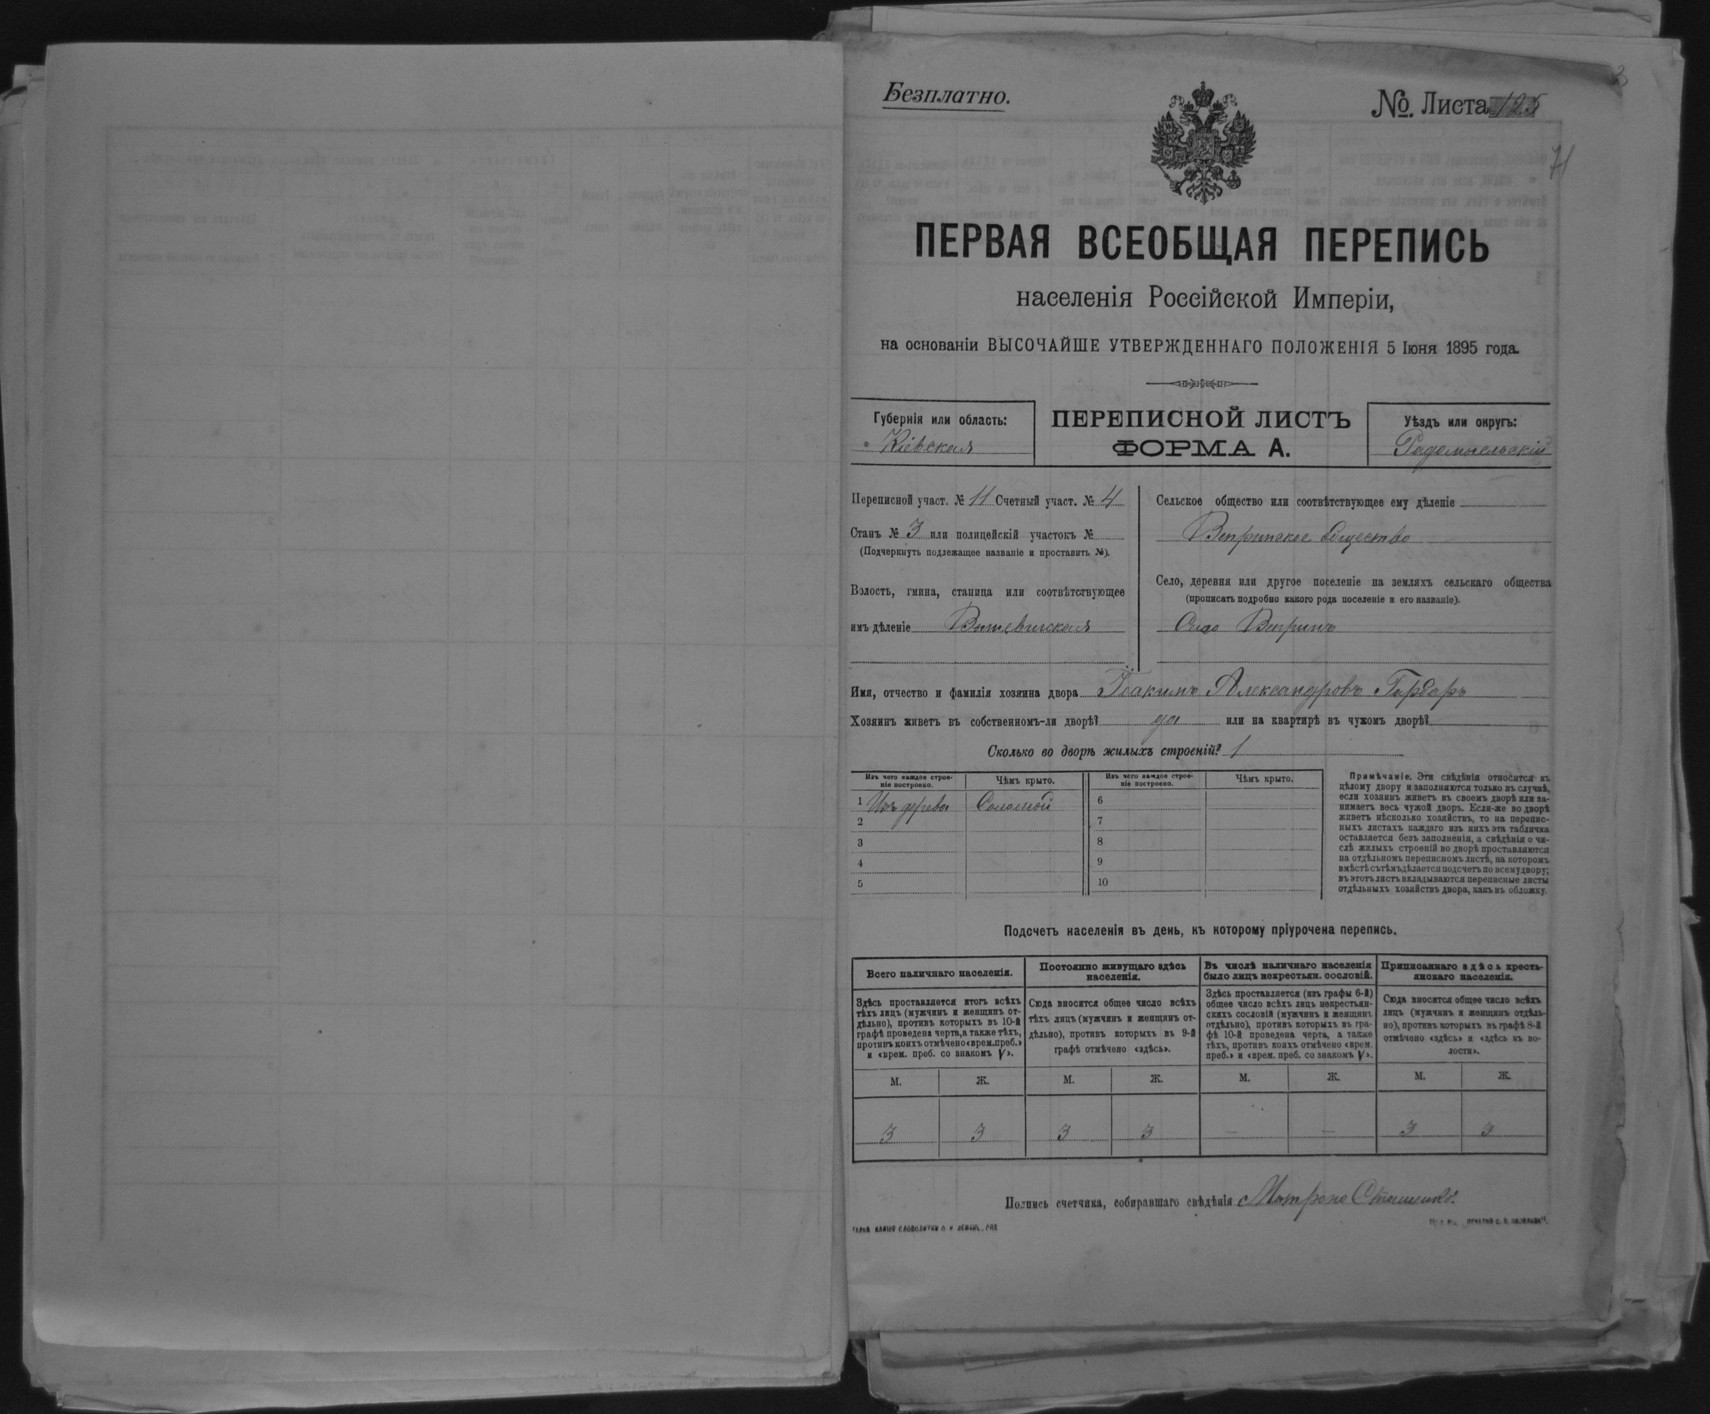 Безплатно.
№. Листа 125
71
ПЕРВАЯ ВСЕОБЩАЯ ПЕРЕПИСЬ
населенія Россійской Имперіи,
на основаніи ВЫСОЧАЙШЕ УТВЕРЖДЕННАГО ПОЛОЖЕНІЯ 5 Іюня 1895 года.
Губернія или область:
Кіевская
ПЕРЕПИСНОЙ ЛИСТЪ
ФОРМА А.
Уѣздъ или округъ:
Радомысльскій
Переписной участ. № 11 Счетный участ. № 4
Станъ № 3 или полицейскій участокъ №
(Подчеркнуть подлежащее названіе и проставить №).
Волость, гмина, станица или соотвѣтствующее
имъ дѣленіе
Сельское общество или соотвѣтствующее ему дѣленіе
Вепринское общество
Село, деревня или другое поселеніе на земляхъ сельскаго общества
(прописать подробно какого рода поселеніе и его названіе).
Село Вепринъ
Имя, отчество и фамилія хозяина двора Іоакимъ Александровъ
Хозяинъ живетъ въ собственномъ-ли дворѣ? да или на квартирѣ въ чужомъ дворѣ?
Сколько во дворѣ жилыхъ строеній? 1
Изъ чего каждое строе-
ніе построено.
Чѣмъ крыто.
Изъ чего каждое строе-
ніе построено.
Чѣмъ крыто.
1 Изъ дерева Соломой
2
3
4
5
6
7
8
9
10
Примѣчаніе. Эти свѣдѣнія относятся къ
цѣлому двору и заполняются только въ случаѣ,
если хозяинъ живетъ въ своемъ дворѣ или за-
нимаетъ весь чужой дворъ. Если-же во дворѣ
живетъ нѣсколько хозяйствъ, то на перепис-
ныхъ листахъ каждаго изъ нихъ эта табличка
оставляется безъ заполненія, а свѣдѣнія о чи-
слѣ жилыхъ строеній во дворѣ проставляются
на отдѣльномъ переписномъ листѣ, на которомъ
вмѣстѣ съ тѣмъ дѣлается подсчетъ по всему двору;
въ этотъ листъ вкладываются переписные листы
отдѣльныхъ хозяйствъ двора, какъ въ обложку.
Подсчетъ населенія въ день, къ которому пріурочена перепись.
Всего наличнаго населенія.
Здѣсь проставляется итогъ всѣхъ
тѣхъ лицъ (мужчинъ и женщинъ от-
дѣльно), противъ которыхъ въ 10-й
графѣ проведена черта, а также тѣхъ,
противъ коихъ отмѣчено «врем. преб.»
и «врем. преб. со знакомъ V».
Постоянно живущаго здѣсь
населенія.
Сюда вносится общее число всѣхъ
тѣхъ лицъ (мужчинъ и женщинъ от-
дѣльно), противъ которыхъ въ 9-й
графѣ отмѣчено «здѣсь».
Въ числѣ наличнаго населенія
было лицъ некрестьян. сословій.
Здѣсь проставляется (изъ графы 6-й)
общее число всѣхъ лицъ некрестьян-
скихъ сословій (мужчинъ и женщинъ
отдѣльно), противъ которыхъ въ гра-
фѣ 10-й проведена черта, а также
тѣхъ, противъ коихъ отмѣчено «врем.
преб.» и «врем. преб. со знакомъ V».
Приписаннаго здѣсь кресть-
янскаго населенія.
Сюда вносится общее число всѣхъ
лицъ (мужчинъ и женщинъ отдѣль-
но), противъ которыхъ въ графѣ 8-й
отмѣчено «здѣсь» и «здѣсь въ во-
лости».
М. Ж. М. Ж. М. Ж. М. Ж.
3 3 3 3 — — 3 3
Подпись счетчика, собиравшаго свѣдѣнія